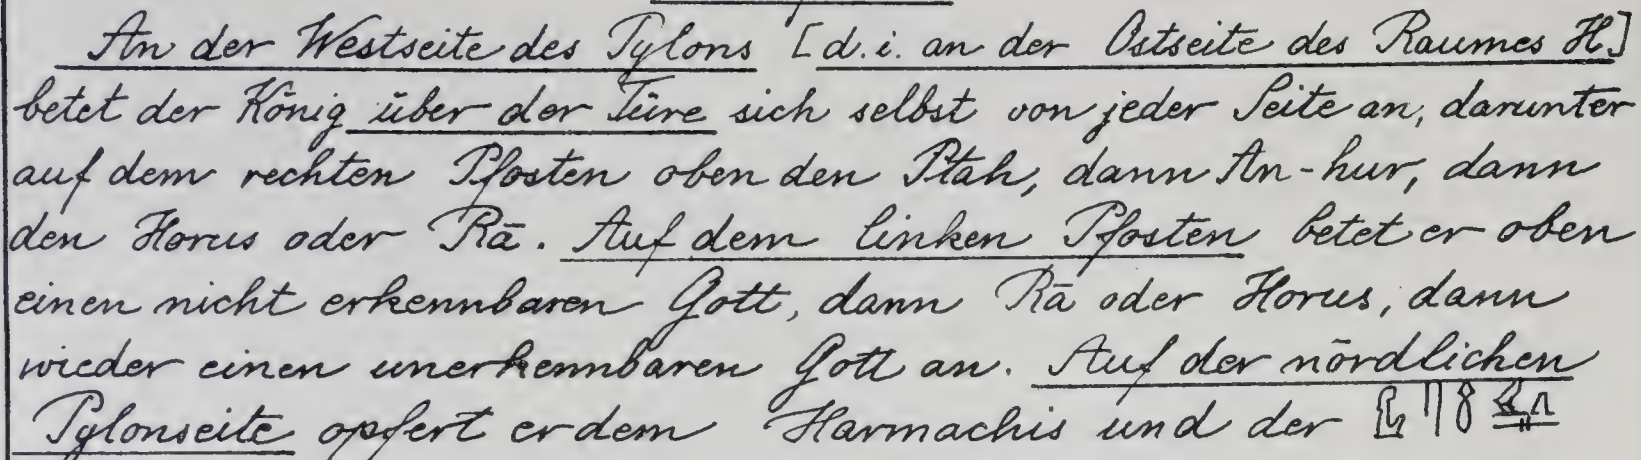 An der Westseite des Pylons [d.i. an der Ostseite des Raumes H.]
betet der König über der Türe sich selbst von jeder Seite an, darunter
auf dem rechten Pfosten oben den Ptah, dann An-hur, dann
den Horus oder Rā. Auf dem linken Pfosten betet er oben
einen nicht erkennbaren Gott, dann Rā oder Horus, dann
wieder einen unerkennbaren Gott an. Auf der nördlichen
Pylonseite opfert er dem Harmachis und der